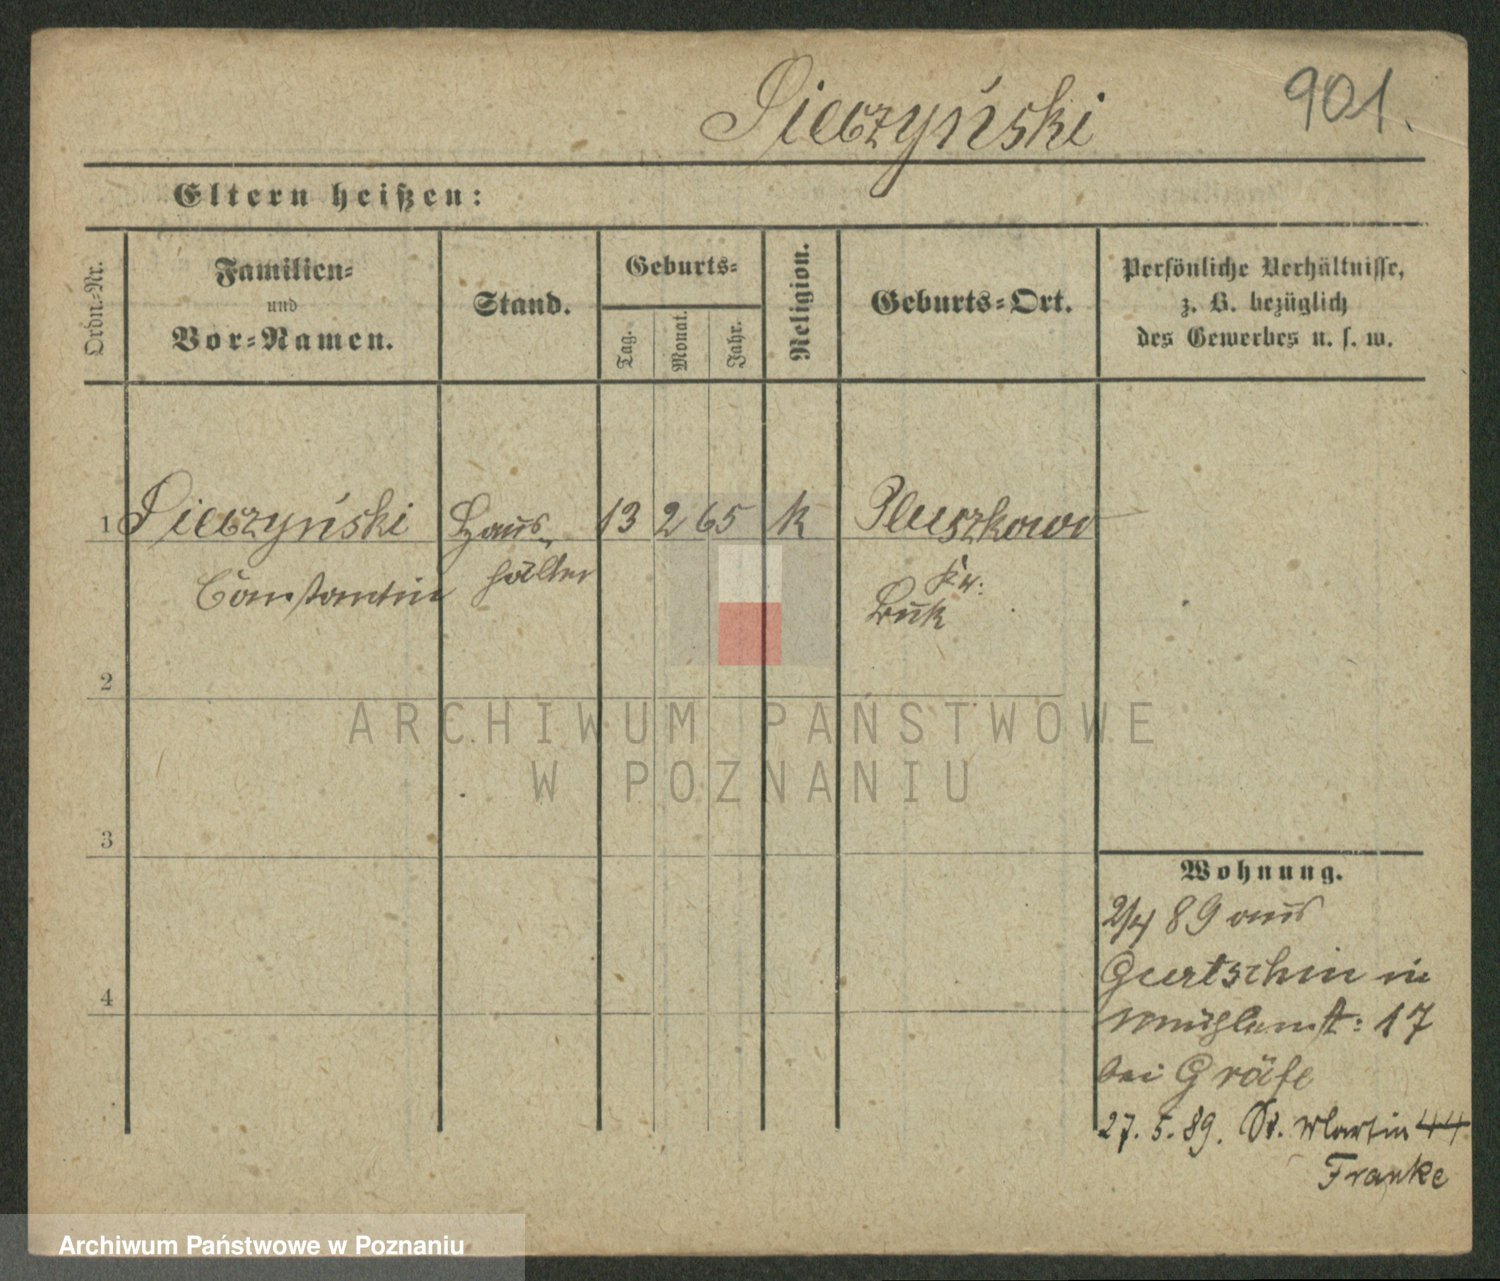 Pieczyński
901.
Eltern heißen:
Ordn.-Nr.
Familien-
und
Vor-Namen.
Stand.
Geburts-
Tag.
Monat.
Jahr.
Religion.
Geburts-Ort.
Persönliche Verhältnisse,
z. B. bezüglich
des Gewerbes u. s. w.
1 Pieczyński Haus- 13 2 65 k Pluszkowo
Constantin hälter Kr.
Buk
2
3
4
Wohnung.
2/4 89 aus
Gurtschin in
Mühlenst: 17
bei Gräfe
27. 5. 89. St. Martin 44
Franke
ARCHIWUM PAŃSTWOWE
W POZNANIU
Archiwum Państwowe w Poznaniu